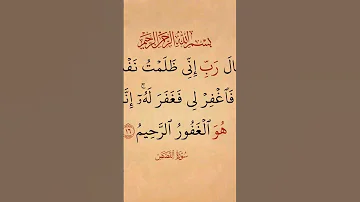 بِسْمِ ٱللَّهِ ٱلرَّحْمَٰنِ ٱلرَّحِيمِ
الَ رَبِّ إِنِّى ظَلَمْتُ نَفْ
فَٱغْفِرْ لِى فَغَفَرَ لَهُۥٓ ۚ إِنَّ
هُوَ ٱلْغَفُورُ ٱلرَّحِيمُ ١٦
سُورَةُ القَصَصِ